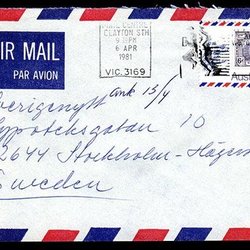 AIR MAIL
PAR AVION
CLAYTON STH
6 APR
1981
VIC. 3169
Austr
Sverigenytt
ank 15/4
Hypoteksgatan 10
12644 Stockholm-Hägers
Sweden